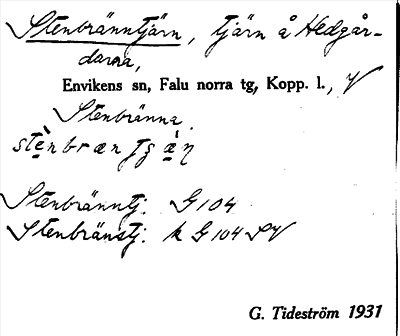 Stenbränntjärn, tjärn å Hedgår-
darna,
Envikens sn, Falu norra tg, Kopp. l., V
Stenbränna.
Stenbränntj. G 104
Stenbränstj. k G 104 SV
G. Tideström 1931